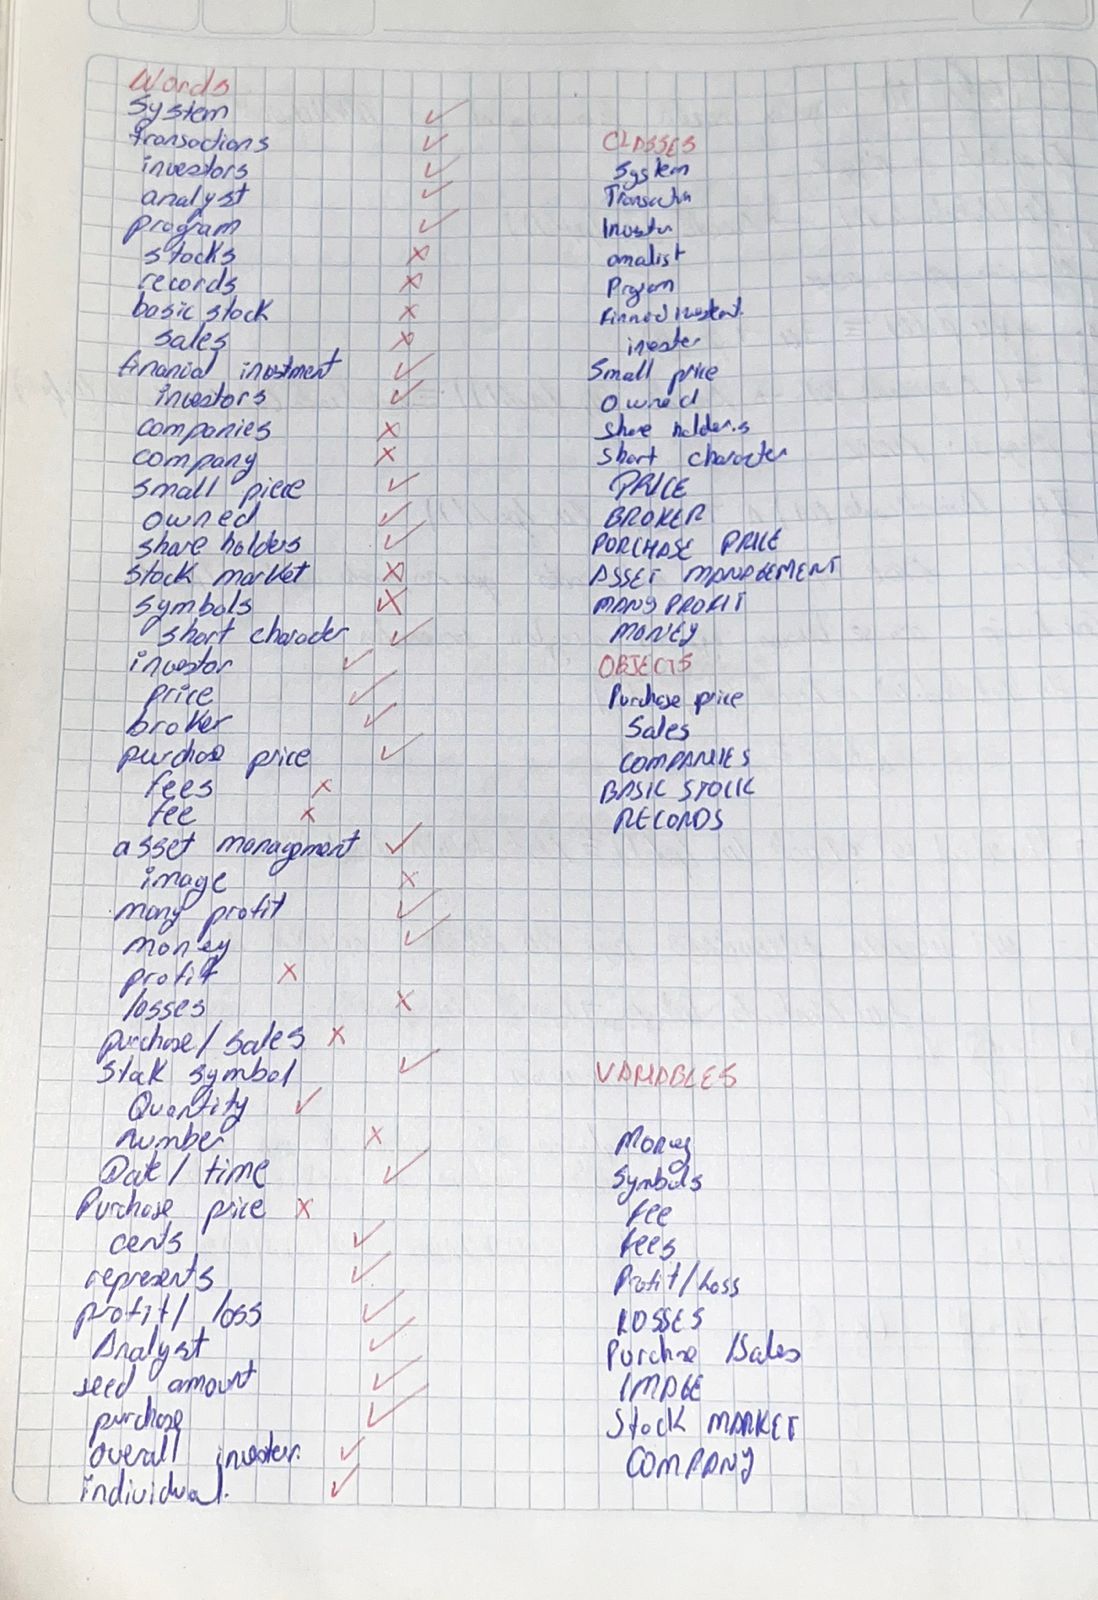 Words
System
transactions
investors
analyst
program
stocks
records
basic stock
sales
finanial invstment
investors
companies
company
small piece
owned
share holders
stock market
symbols
short character
investor
price
broker
purchase price
fees
fee
asset managment
image
many profit
money
profit
losses
purchase / sales
stak symbol
Quantity
number
Date / time
Purchase price
cents
represents
profit / loss
Analyst
seed amount
purchase
overall
individual.
CLASSES
System
Investor
analist
Program
invester
Small price
Owned
share holders
short character
PRICE
BROKER
PORCHASE PRICE
ASSET MANAGEMENT
MANY PROFIT
MONEY
OBJECTS
Purchase price
Sales
COMPANIES
BASIC STOCK
RECORDS
VARIABLES
Money
Symbols
Fee
fees
Profit / Loss
LOSSES
Purchase / Sales
IMAGE
Stock MARKET
COMPANY